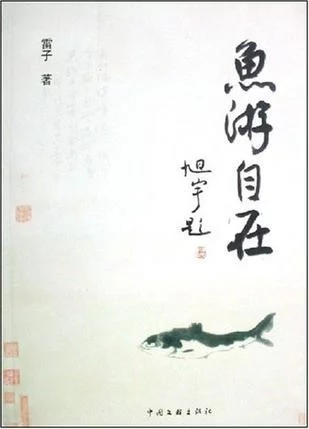 魚游自在
旭宇题
雷子 著
中国文联出版社